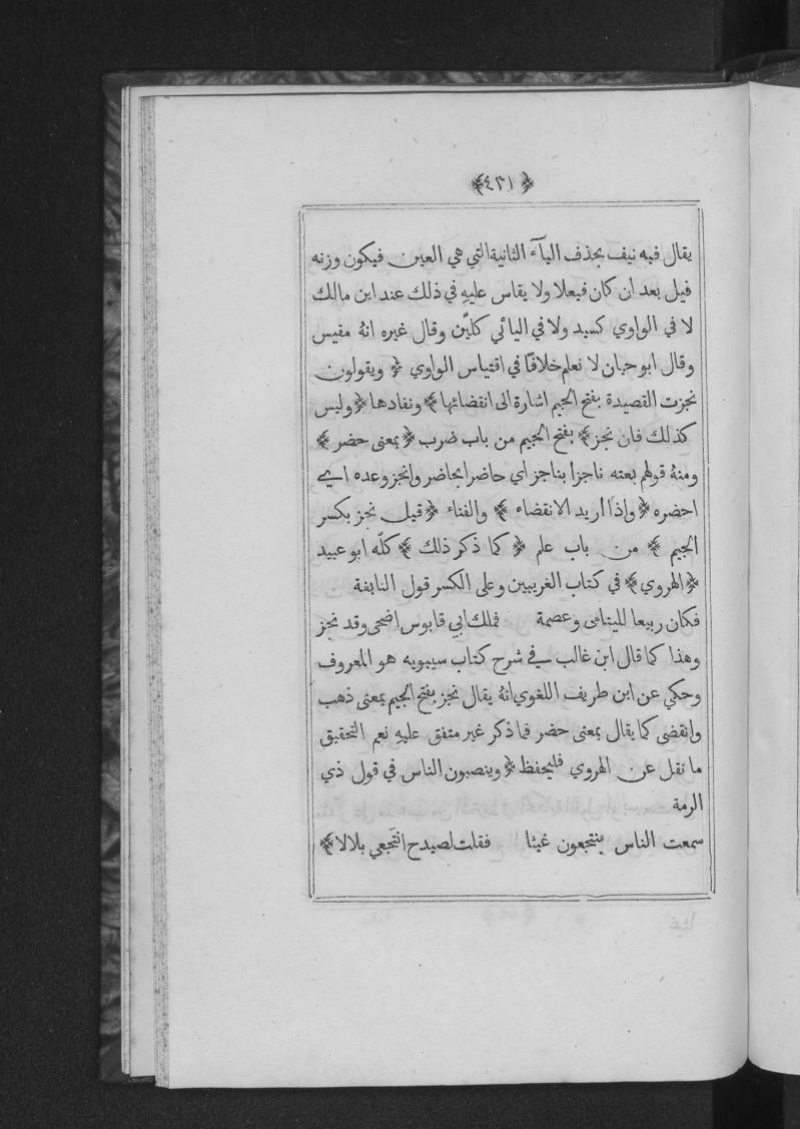 ﴿٤٢١﴾
يقال فيه نيف بحذف الياء الثانية التي هي العين فيكون وزنه
فيل بعد ان كان فيعلا ولا يقاس عليه في ذلك عند ابن مالك
لا في الواوي كسيد ولا في اليائي كليّن وقال غيره انه مقيس
وقال ابو حيان لا نعلم خلافا في اقتياس الواوي ﴿ ويقولون
نجزت القصيدة بفتح الجيم اشارة الى انقضائها ﴾ ونفادها ﴿ وليس
كذلك فان نجز ﴾ بفتح الجيم من باب ضرب ﴿ بمعنى حضر ﴾
ومنه قولهم بعته ناجزا بناجز اي حاضرا بحاضر وانجز وعده اي
احضره ﴿ واذا أريد الانقضاء ﴾ والفناء ﴿ قيل نجز بكسر
الجيم ﴾ من باب علم ﴿ كما ذكر ذلك ﴾ كلّه ابو عبيد
﴿ الهروي ﴾ في كتاب الغريبين وعلى الكسر قول النابغة
فكان ربيعا لليتامى وعصمة فملك ابي قابوس اضحى وقد نجز
وهذا كما قال ابن غالب في شرح كتاب سيبويه هو المعروف
وحكي عن ابن طريف اللغوي انه يقال نجز بفتح الجيم بمعنى ذهب
وانقضى كما يقال بمعنى حضر فما ذكر غير متفق عليه نعم التحقيق
ما نقل عن الهروي فليحفظ ﴿ وينصبون الناس في قول ذي
الرمة
سمعت الناس ينتجعون غيثا فقلت لصيدح انتجعي بلالا ﴾